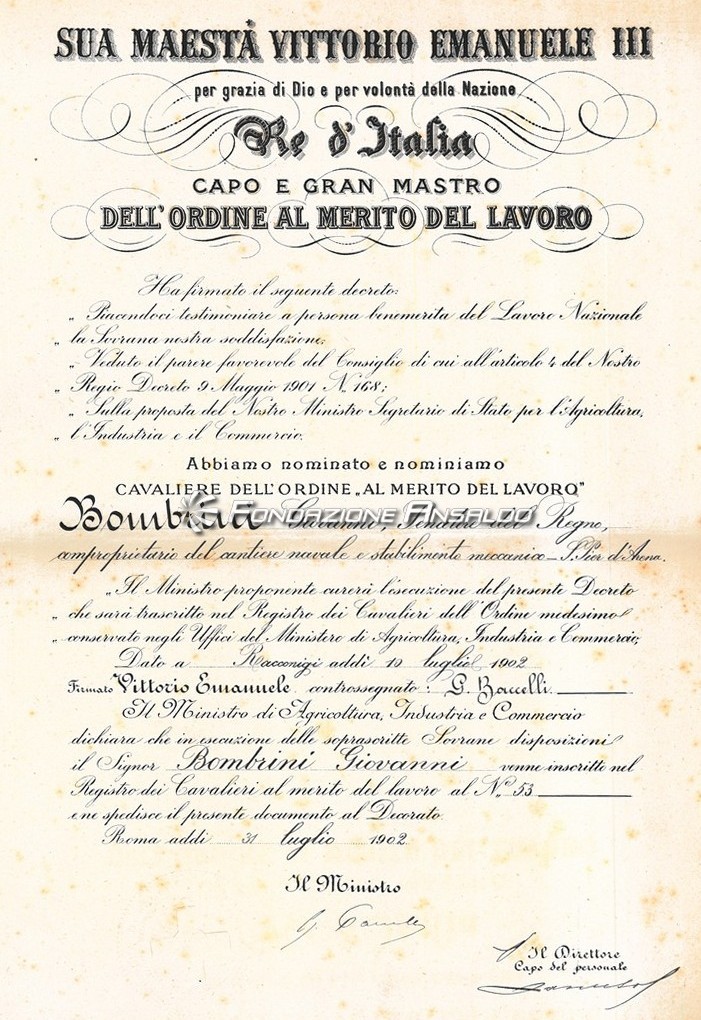 SUA MAESTÀ VITTORIO EMANUELE III
per grazia di Dio e per volontà della Nazione
Re d'Italia
CAPO E GRAN MASTRO
DELL'ORDINE AL MERITO DEL LAVORO
Ha firmato il seguente decreto:
„ Piacendoci testimoniare a persona benemerita del Lavoro Nazionale
„ la Sovrana nostra soddisfazione;
„ Veduto il parere favorevole del Consiglio di cui all'articolo 4 del Nostro
„ Regio Decreto 9 Maggio 1901 N. 168;
„ Sulla proposta del Nostro Ministro Segretario di Stato per l'Agricoltura,
„ l'Industria e il Commercio.
Abbiamo nominato e nominiamo
CAVALIERE DELL'ORDINE „AL MERITO DEL LAVORO"
Bombrini Giovanni, Senatore del Regno,
FONDAZIONE ANSALDO
comproprietario del cantiere navale e stabilimento meccanico - S. Pier d'Arena.
„Il Ministro proponente curerà l'esecuzione del presente Decreto
„ che sarà trascritto nel Registro dei Cavalieri dell'Ordine medesimo
„ conservato negli Uffici del Ministero di Agricoltura, Industria e Commercio;
Dato a Racconigi addì 10 luglio 1902
Firmato Vittorio Emanuele controssegnato: G. Baccelli.
Il Ministro di Agricoltura, Industria e Commercio
dichiara che in esecuzione delle soprascritte Sovrane disposizioni
il Signor Bombrini Giovanni venne inscritto nel
Registro dei Cavalieri al merito del lavoro al N.º 53
e ne spedisce il presente documento al Decorato.
Roma addì 31 luglio 1902
Il Ministro
Il Direttore
Capo del personale